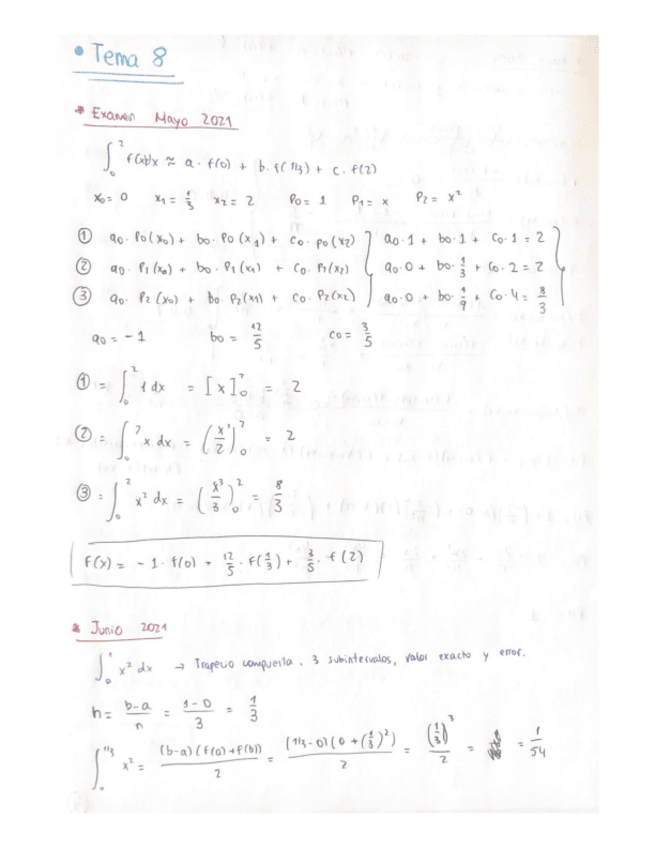 • Tema 8
* Examen Mayo 2021
∫₀² f(x)dx ≈ a · f(0) + b · f(1/3) + c · f(2)
x₀ = 0 x₁ = 1/3 x₂ = 2 P₀ = 1 P₁ = x P₂ = x²
① a₀ · P₀(x₀) + b₀ · P₀(x₁) + c₀ · p₀(x₂) } a₀ · 1 + b₀ · 1 + c₀ · 1 = 2
② a₀ · P₁(x₀) + b₀ · P₁(x₁) + c₀ · P₁(x₂) } a₀ · 0 + b₀ · 1/3 + c₀ · 2 = 2
③ a₀ · P₂(x₀) + b₀ · P₂(x₁) + c₀ · P₂(x₂) } a₀ · 0 + b₀ · 1/9 + c₀ · 4 = 8/3
a₀ = -1 b₀ = 12/5 c₀ = 3/5
① = ∫₀² 1 dx = [x]₀² = 2
② = ∫₀² x dx = (x²/2)₀² = 2
③ = ∫₀² x² dx = (x³/3)₀² = 8/3
f(x) = -1 · f(0) + 12/5 · f(1/3) + 3/5 · f(2)
* Junio 2021
∫₀¹ x² dx → Trapecio compuesta. 3 subintervalos, valor exacto y error.
h = b-a/n = 1-0/3 = 1/3
∫₀^1/3 x² = (b-a)(f(a)+f(b))/2 = (1/3-0)(0+(1/3)²)/2 = (1/3)³/2 = = 1/54